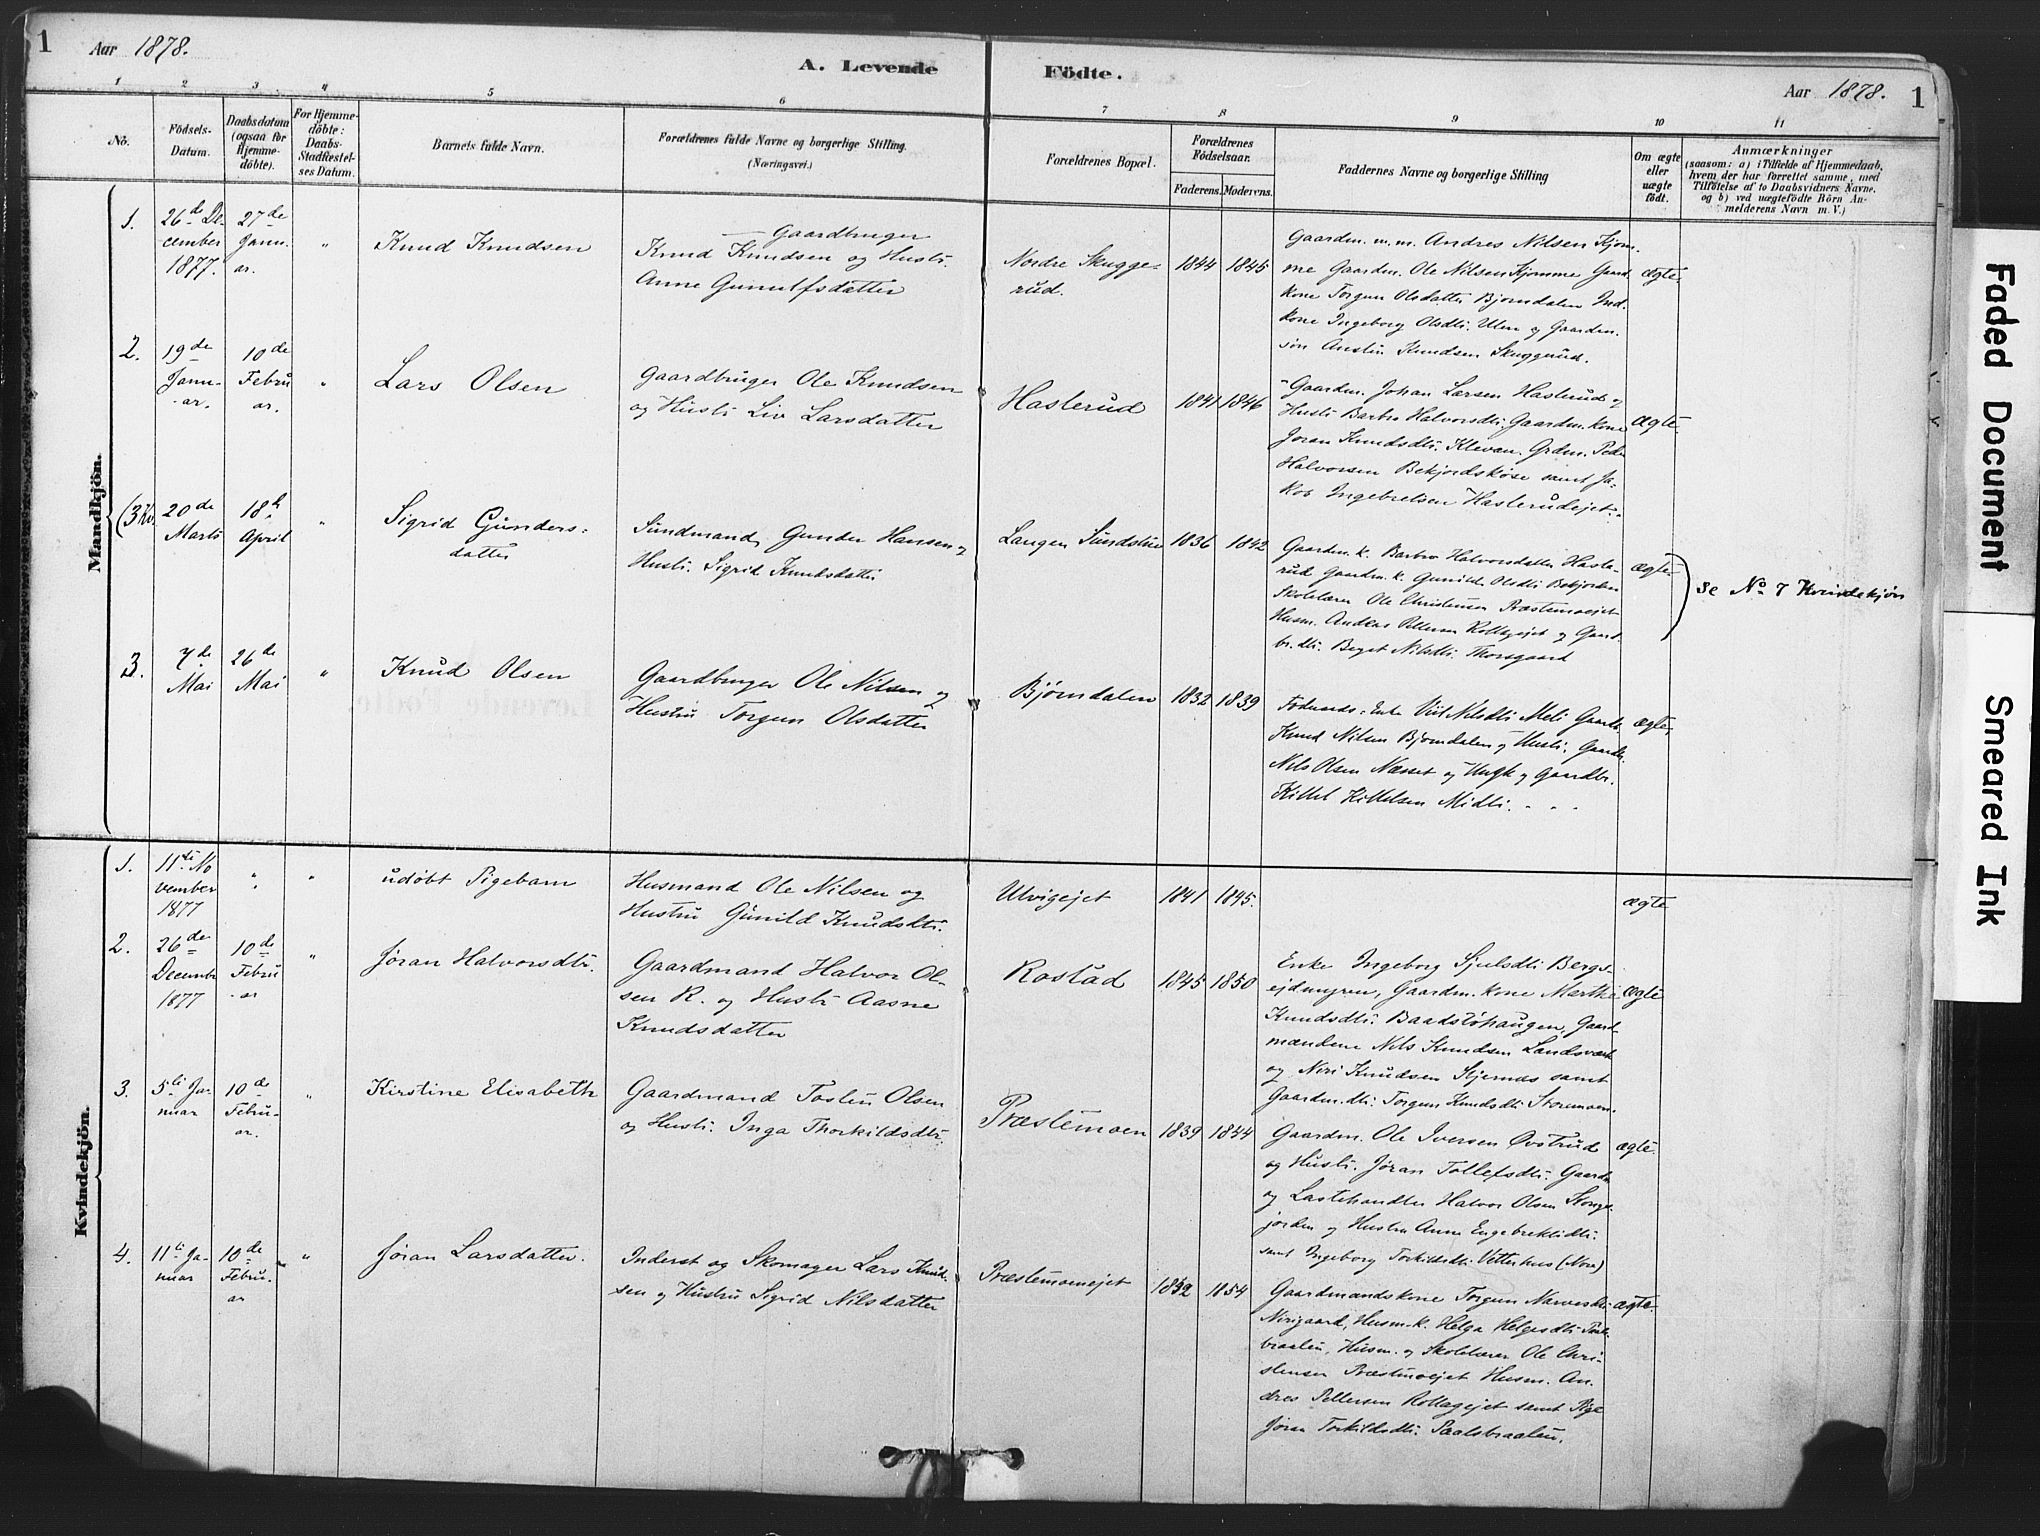 1
Aar 1878.
A. Levende
Födte.
Aar 1878.
1
1 2 3 4 5 6 7 8 9 10 11
No.
Födsels-
Datum.
Daabsdatum
(ogsaa för
Hjemme-
döbte).
For Hjemme-
döbte:
Daabs-
Stadfæstel-
ses Datum.
Barnets fulde Navn.
Forældrenes fulde Navne og borgerlige Stilling.
(Næringsvei.)
Forældrenes Bopæl.
Forældrenes
Födselsaar.
Faderens. Moderens.
Faddernes Navne og borgerlige Stilling
Om ægte
eller
uægte
födt.
Anmærkninger
(saasom: a) i Tilfælde af Hjemmedaab,
hvem der har forrettet samme, med
Tilföielse af to Daabsvidners Navne.
og b) ved uægtefödte Börn An-
melderens Navn m. V.)
Mandkjön.
1.
26de De-
cember
1877.
27de
Janu-
ar.
"
Knud Knudsen
Gaardbruger
Knud Knudsen og Hustr.
Anne Gunulfsdatter
Nordre Skugge-
rud.
1844 1845
Gaardm. m. m. Andres Nilsen Kjom-
me Gaardm. Ole Nilsen Kjomme Gaard-
kone Torgun Olsdatter Bjorndalen Ind-
kone Ingeborg Olsdtr. Ulen og Gaardm.
søn Austin Knudsen Skuggerud.
ægte.
2.
19de
Janu-
ar.
10de
Febru
ar.
"
Lars Olsen
Gaardbruger Ole Knudsen
og Hustr. Liv Larsdatter
Hasterud
1841 1846
Gaardm. Johan Larsen Hasterud og
Hustr. Barbro Halvorsdtr. Gaardm. kone
Joran Knudsdtr. Klevan. Grdm. Peder
Halvorsen Bekjordskøse samt Ja-
kob Ingebretsen Hasterudejet.
ægte.
(3 Kv.
20de
Marts
18de
April
"
Sigrid Gunders-
datter
Sundmand Gunder Hansen og
Hustr. Sigrid Knudsdatter
Langen Sundstue
1836 1842
Gaardm. k. Barbro Halvorsdatter Haste-
rud Gaardm. k. Gunild Olsdtr. Bekjorden
Skolelærer Ole Christensen Præstemoejet
Husm. Andreas Pettersen Rollagejet og Gaard-
br. dtr. Beret Nilsdtr. Thorsgaard
ægte
se No 7 Kvindekjøn
3.
7de
Mai
26de
Mai
"
Knud Olsen
Gaardbruger Ole Nilsen og
Hustru Torgun Olsdatter
Bjørndalen
1832 1839
Enke Nilsdtr. Meli Gaardbr.
Knud Nilsen Bjorndalen og Hustr. Gaardbr.
Nils Olsen Næsset og Ungk. og Gaardbr.
Kittel Kittelsen Midtli.
ægte,
Kvindekjön.
1.
11te No
vember
1877
"
"
udøbt Pigebarn
Husmand Ole Nilsen og
Hustru Gunild Knudsdtr.
Ulvigejet
1841 1845.
ægte
2.
26de
Decembr
1877
10de
Febru
ar
"
Jøran Halvorsdtr.
Gaardmand Halvor Ol-
sen R. og Hustr. Aasne
Knudsdatter
Rostad
1845 1850
Enke Ingeborg Sjulsdtr. Bergs-
ejdmyren, Gaardm. kone Marthe
Knudsdtr. Baadstøhaugen, Gaard-
mændene Nils Knudsen Landsværk
og Niri Knudsen Stjernæs samt
Gaardm. dtr. Torgun Knudsdtr. Storemoen.
ægte
3.
5te Ja-
nuar
10de
Febru-
ar.
"
Kirstine Elisabeth
Gaardmand Tosten Olsen
og Hustr. Inga Thorkildsdtr.
Præstemoen
1839 1844
Gaardm. Ole Iversen Øvstrud
og Hustr. Jøran Tollefsdtr. Gaardm.
og Lastehandler Halvor Olsen Stengs-
jorden og Hustru Anne Engebrektsdtr.
samt Ingeborg Torkildsdtr. Vetterhus (Nore)
ægte.
4.
11te Ja-
nuar
10de
Febru-
ar
"
Jøran Larsdatter.
Inderst og Skomager Lars Knud-
sen og Hustru Sigrid Nilsdatter
Præstemoenejet
1852 1854
Gaardmandskone Torgun Narvesdtr.
Nirigaard, Husm. k. Helga Helgesdtr.
braaten, Husm. og Skolelærer Ole Chri-
stensen Præstmoejet Husm. An-
dres Pettersen Rollagejet samt Pige
Jøran Torkildsdtr. Paalsbraaten.
ægte.
Faded Document
Smeared Ink